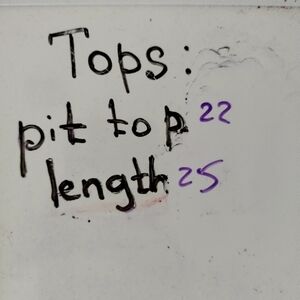 Tops:
pit to p 22
length 25